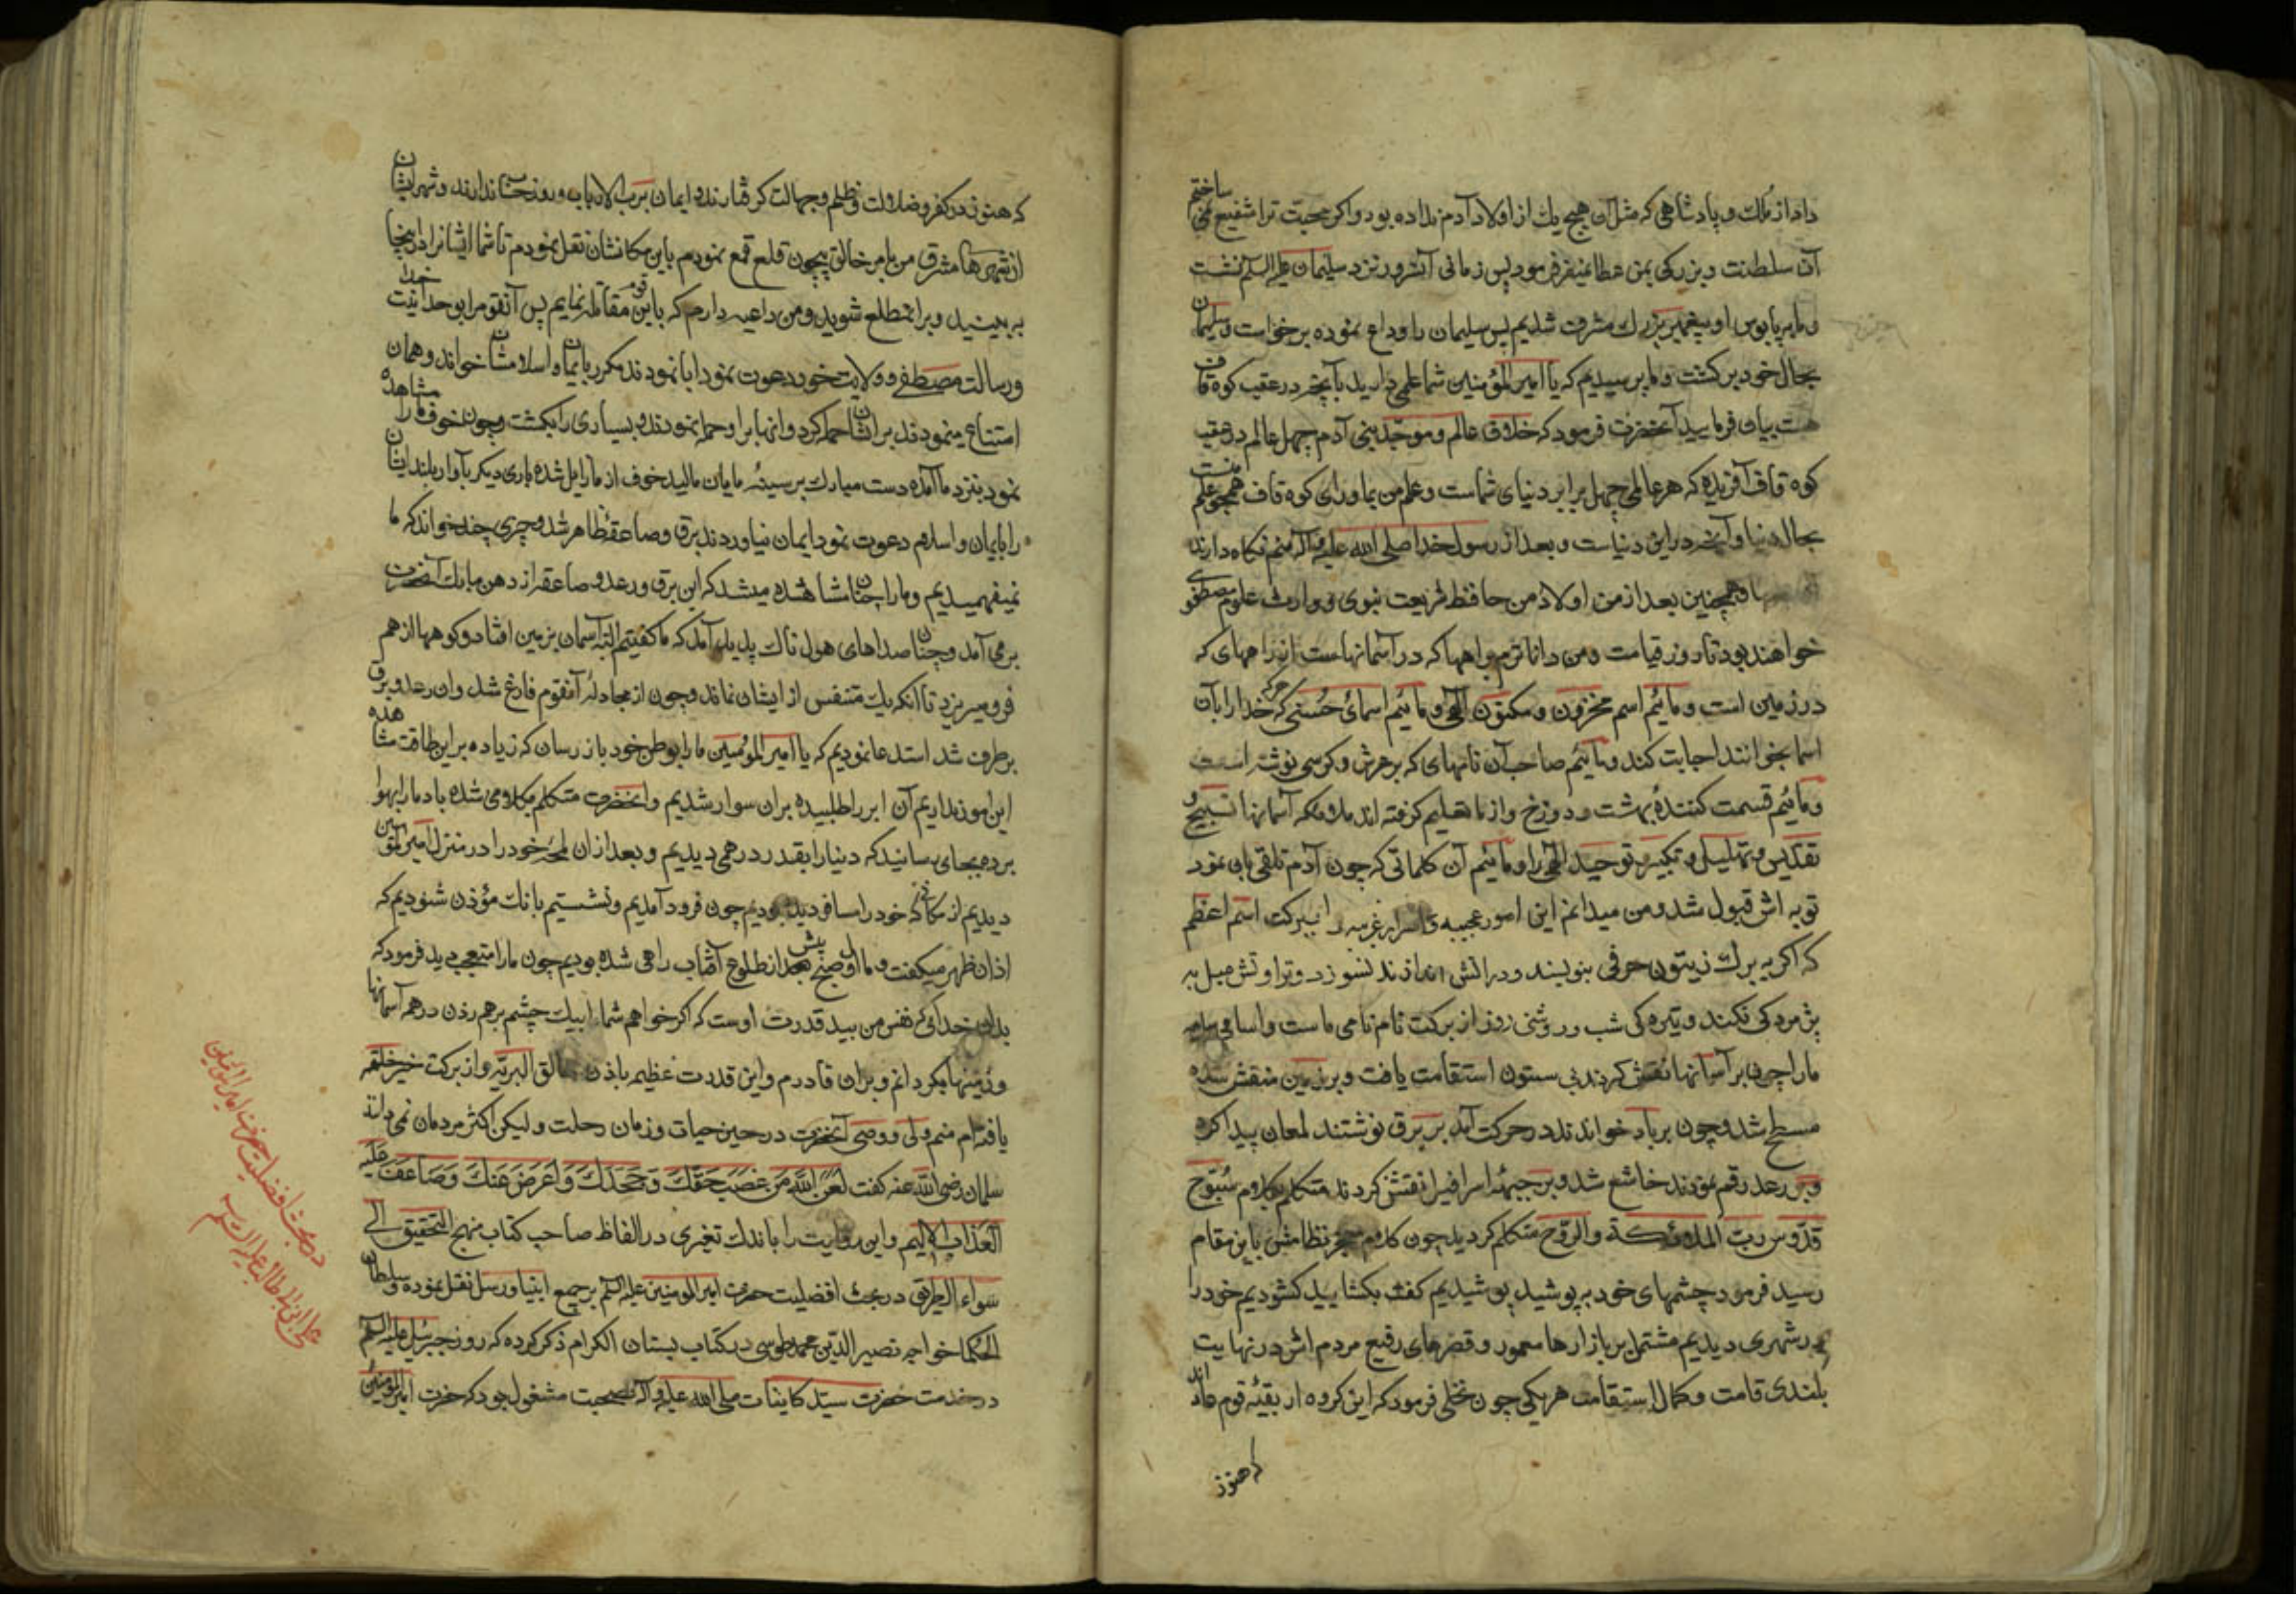 داد از ملک و پادشاهی که مثل آن هیچ یک از اولاد آدم نداده بود و اگر محبت ترا شفیع نمی ساختم
آن سلطنت و بزرگی بمن عطا نمیفرمود پس زمانی آنسرور نزد سلیمان علیه السلام نشست
و ما بپابوس او پیغمبر بزرک مشرف شدیم پس سلیمان را وداع نموده برخواست و سلیمان
بحال خود برکشت و ما پرسیدیم که یا امیر المؤمنین شما علمی دارید بآنچه در عقب کوه قاف
هست بیان فرمایید آنحضرت فرمود که خلاق عالم و موجد بنی آدم چهل عالم در عقب
کوه قاف آفریده که هر عالمی چهل برابر دنیای شماست و علم من بماورای کوه قاف همچو علم منست
بحال دنیا و آنچه در این دنیاست و بعد از رسول خدا صلی الله علیه و آله منم نکاه دارنده
و همچنین بعد از من اولاد من حافظ شریعت نبوی و وارث علوم مصطفوی
خواهند بود تا روز قیامت و من داناترم براهها که در آسمانهاست از راههای که
در زمین است و مائیم اسم مخزون و مکنون الهی و مائیم اسمای حسنی که هر که خدا را بآن
اسما بخوانند اجابت کند و مائیم صاحب آن نامهای که بر عرش و کرسی نوشته است
و مائیم قسمت کنندهٔ بهشت و دوزخ و از ما تعلیم کرفته اند ملائکه آسمانها تسبیح و
تقدیس و تهلیل و تکبیر و توحید الهی را و مائیم آن کلماتی که چون آدم تلقی بان نمود
توبه اش قبول شد و من میدانم این امور عجیبه و اسرار غریبه را ببرکت اسم اعظم
که اگر به برک زیتون حرفی بنویسند و در اتش اندازند نسوزد و تراوتش میل به
پژمردکی نکند و تیره کی شب و روشنی روز از برکت نام نامی ماست و اسامی سامیه
ما را چون بر آسمانها نقش کردند بی ستون استقامت یافت و بر زمین منقش شده
مسطح شد و چون بر باد خواندند در حرکت آمد بر برق نوشتند لمعان پیدا کرد
و بر رعد رقم نمودند خاشع شد و بر جبهه اسرافیل نقش کردند متکلم بکلام سبوح
قدوس رب الملائکة والروح متکلم کردید چون کلام معجز نظامش باین مقام
رسید فرمود چشمهای خود بپوشید پوشیدیم کفت بکشایید کشودیم خود را
در شهری دیدیم مشتمل بر بازارها معمور و قصرهای رفیع مردم اش در نهایت
بلندی قامت و کمال استقامت هر یکی چون نخلی فرمود که این کروه از بقیهٔ قوم عاد اند
که هنوز
که هنوز در کفر و ضلالت و ظلم و جهالت کرفتارند و ایمان برب الارباب و روز حساب ندارند و شهر ایشان
از شهرها مشرق من بامر خالق بیچون قلع قمع نمودم باین مکانشان نقل نمودم تا شما ایشانرا در اینجا
به بینید و بر آن مطلع شوید و من داعیه دارم که باین قوم مقاتله نمایم پس آنقوم را بوحدانیت خدا
و رسالت مصطفی و ولایت خود دعوت نمود ابا نمودند مکرر بایمان و اسلامشان خواند و همان
امتناع مینمودند بر ایشان حمله کرد و انها بر او حمله نمودند و بسیاری را بکشت و چون خوف ما را مشاهده
نمود بنزد ما آمده دست مبارک بر سینهٔ مایان مالید خوف از ما زایل شده باری دیکر بآواز بلند ایشان
را بایمان و اسلام دعوت نمود ایمان نیاوردند برق و صاعقهٔ ظاهر شد و چیزی چند خواند که ما
نمیفهمیدیم و ما را چنان مشاهده میشد که این برق و رعد و صاعقه از دهن مبارک آنحضرت
برمی آمد و چنان صداهای هول ناک پدید آمد که ما کفیتم البته آسمان بزمین افتاد و کوهها از هم
فرو میریزد تا آنکه یک متنفس از ایشان نماند و چون از مجادله آنقوم فارغ شد وان رعد و برق
برطرف شد استدعا نمودیم که یا امیر المؤمنین ما را بوطن خود باز رسان که زیاده بر این طاقت مشاهده
این امور نداریم آن ابر را طلبیده بران سوار شدیم و آنحضرت متکلم بکلامی شده باد ما را بهوا
برده بجای رسانید که دنیا را بقدر درهمی دیدیم و بعد ازان لمحهٔ خود را در منزل امیر المؤمنین
دیدیم از مکانی که خود را مسافر دیده بودیم چون فرود آمدیم و نشستیم بانک مؤذن شنودیم که
اذان ظهر میکفت و ما اول صبح پیش از طلوع آفتاب راهی شده بودیم چون ما را متعجب دید فرمود که
بدان خدائی که نفس من بید قدرت اوست که اکر خواهم شما را بیک چشم برهم زدن در همه آسمانها
و زمینها بکردانم و بران قادرم و این قدرت عظیم باذن خالق البریه و از برکت خیر خلقه
یافته ام منم ولی و وصی آنحضرت در حین حیات و زمان رحلت و لیکن اکثر مردمان نمی دانند
سلمان رضی الله عنه کفت لعن الله من غصب حقک و جحدک و اعرض عنک و ضاعف علیه
العذاب الالیم و این روایت را باندک تغیری در الفاظ صاحب کتاب منهج التحقیق الی
سواء الطریق در بحث افضلیت حضرت امیر المومنین علیه السلم بر جمیع انبیا و رسل نقل نموده و سلطان
الحکما خواجه نصیر الدین محمد طوسی در کتاب بستان الکرام ذکر کرده که روزی جبرئیل علیه السلم
در خدمت حضرت سید کاینات صلی الله علیه و آله بصحبت مشغول بود که حضرت امیر المؤمنین
در بحث افضلیت حضرت امیر المؤمنین
علی ابن ابی طالب علیه السلم